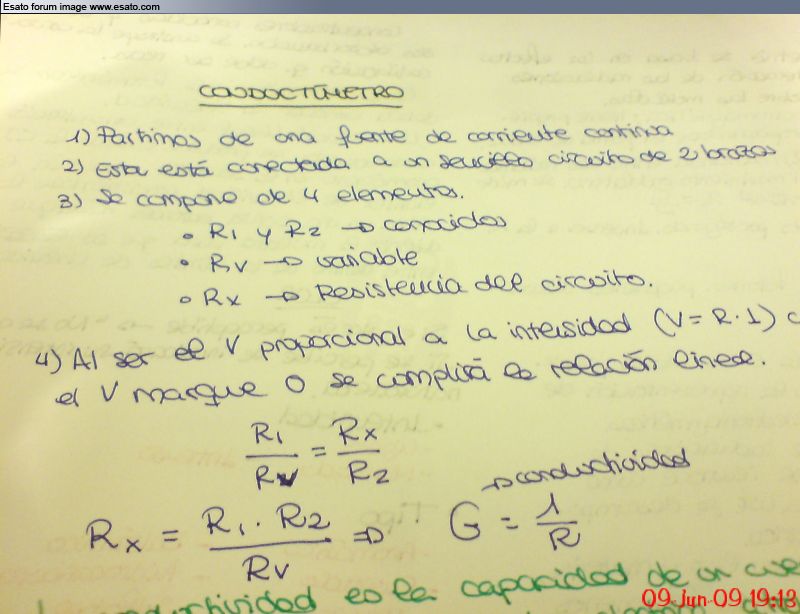 Esato forum image www.esato.com
CONDUCTÍMETRO
1) Partimos de una fuente de corriente continua
2) Esta está conectada a un sencillo circuito de 2 brazos
3) Se compone de 4 elementos.
• R1 y R2 → conocidos
• RV → variable
• Rx → Resistencia del circuito.
4) Al ser el V proporcional a la intensidad (V = R · I) c
el V marque 0 se cumplirá la relación lineal.
R1/RV = Rx/R2
→ conductividad
Rx = R1 · R2/RV ⇒ G = 1/R
conductividad es la capacidad de un cue
09 Jun 09 19:13